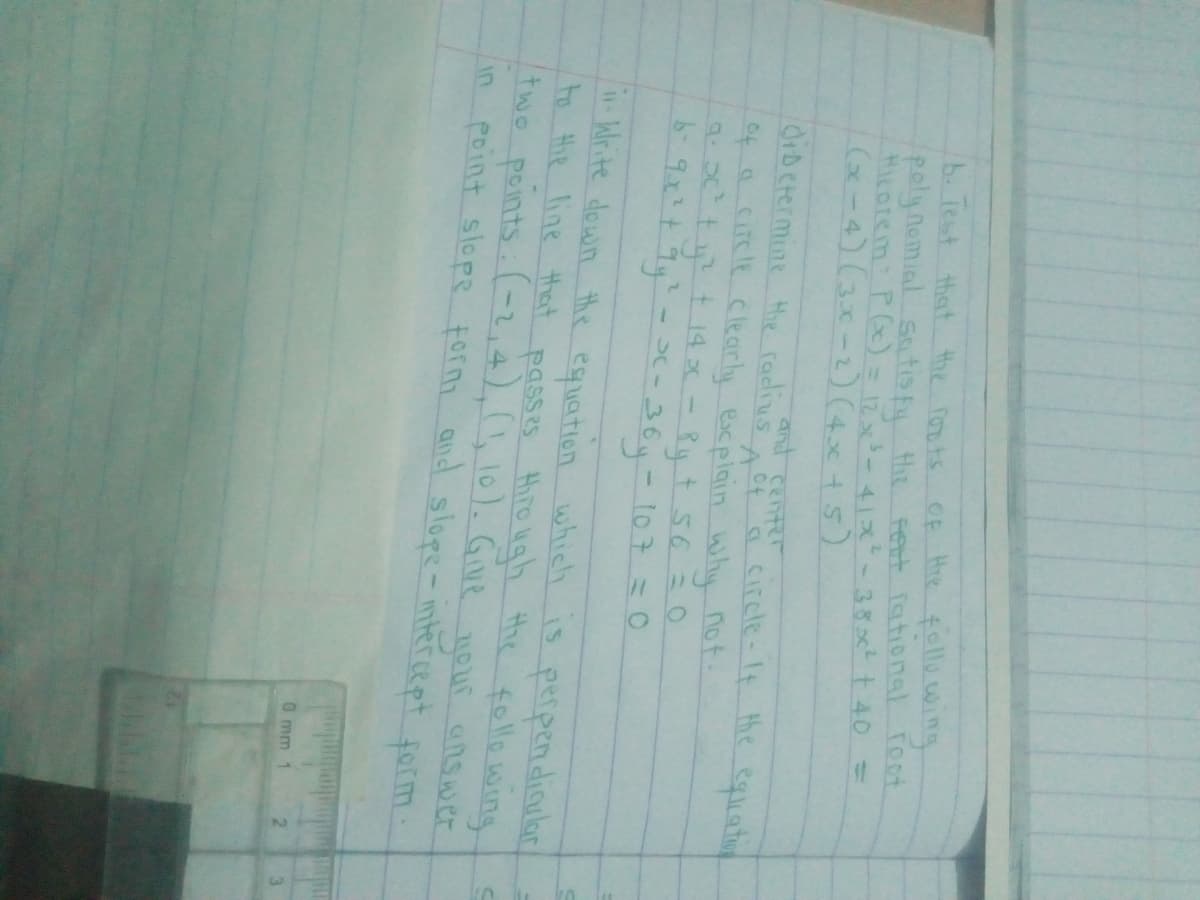 b. Test that the roots of the following
polynomial satisfy the root rational root
theorem: P(x) = 12x³ - 41x² - 38x² + 40 =
(x - 4)(3x - 2)(4x + 5)
d.i Determine the radius and center of a circle. If the equation
of a circle clearly explain why not.
a. x² + y² + 14x - 8y + 56 = 0
b. 9x² + 9y² - x - 36y - 107 = 0
ii. Write down the equation which is perpendicular
to the line that passes through the following
two points: (-2, 4), (1, 10). Give your answer
in point slope form and slope-intercept form.
0 mm 1 2 3